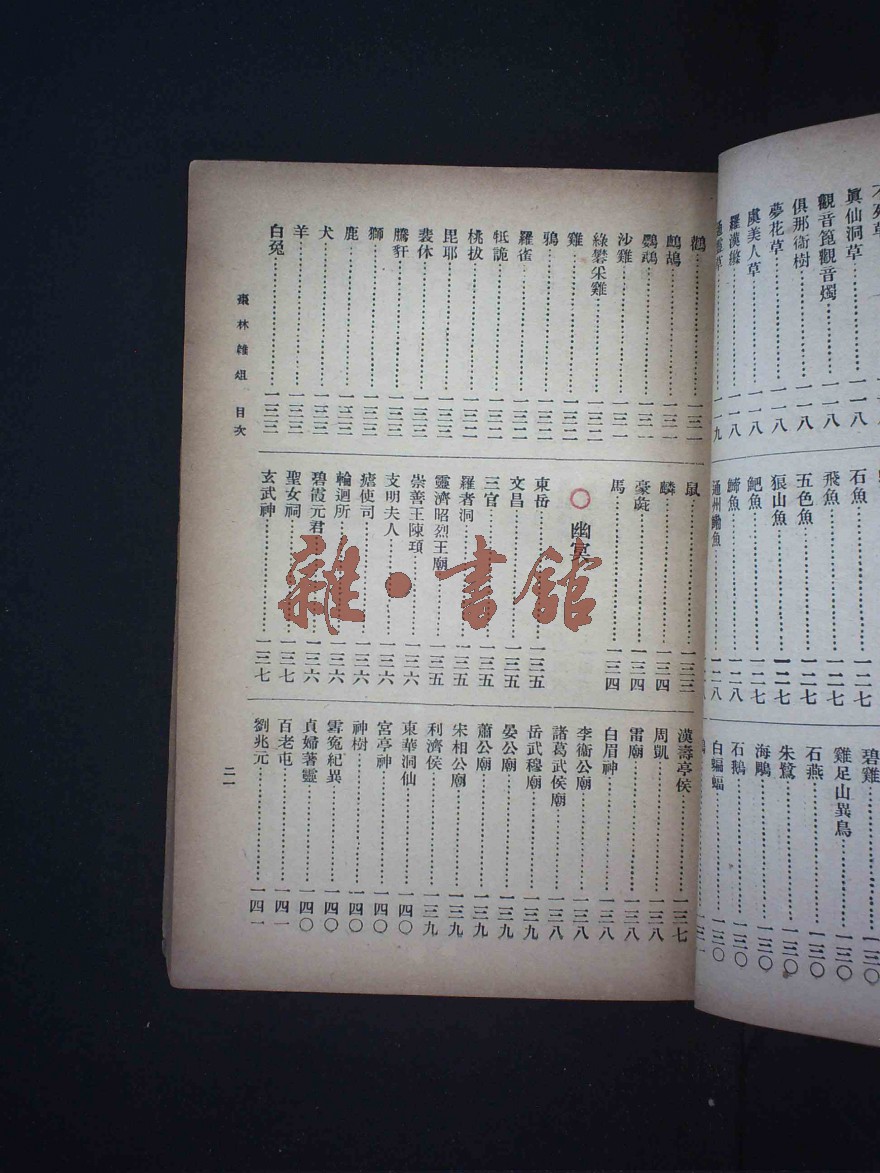 眞仙洞草……一一八
觀音篦觀音燭……一一八
俱那衞樹……一一八
夢花草……一一八
虞美人草……一一八
羅漢縧……一一八
石魚……一二七
飛魚……一二七
五色魚……一二七
狼山魚……一二七
鮑魚……一二七
鰣魚……一二八
碧雞……一三〇
雞足山異鳥……一三〇
石燕……一三〇
朱鷺……一三〇
海鷗……一三〇
石鵝……一三〇
白蝙蝠……一三〇
鶴……一三一
鷓鴣……一三一
鸚鵡……一三一
沙雞……一三一
綠礬采雞……一三二
雞……一三二
鴉……一三二
羅雀……一三二
牴詭……一三二
桃拔……一三二
毘耶……一三三
裴休……一三三
騰豻……一三三
獅……一三三
鹿……一三三
犬……一三三
羊……一三三
白兔……一三三
鼠……一三三
麟……一三四
豪彘……一三四
馬……一三四
〇 幽冥
東岳……一三五
文昌……一三五
三官……一三五
羅者洞……一三五
靈濟昭烈王廟……一三五
崇善王陳頊……一三六
支明夫人……一三六
瘡使司……一三六
輪迴所……一三六
碧霞元君……一三六
聖女祠……一三七
玄武神……一三七
漢壽亭侯……一三七
周凱……一三八
雷廟……一三八
白眉神……一三八
李衞公廟……一三八
諸葛武侯廟……一三八
岳武穆廟……一三九
晏公廟……一三九
蕭公廟……一三九
宋相公廟……一三九
利濟侯……一三九
東華洞仙……一四〇
宮亭神……一四〇
神樹……一四〇
雪寃紀異……一四〇
貞婦著靈……一四〇
百老屯……一四一
劉兆元……一四一
棗林雜俎 目次
二一
雜·書館